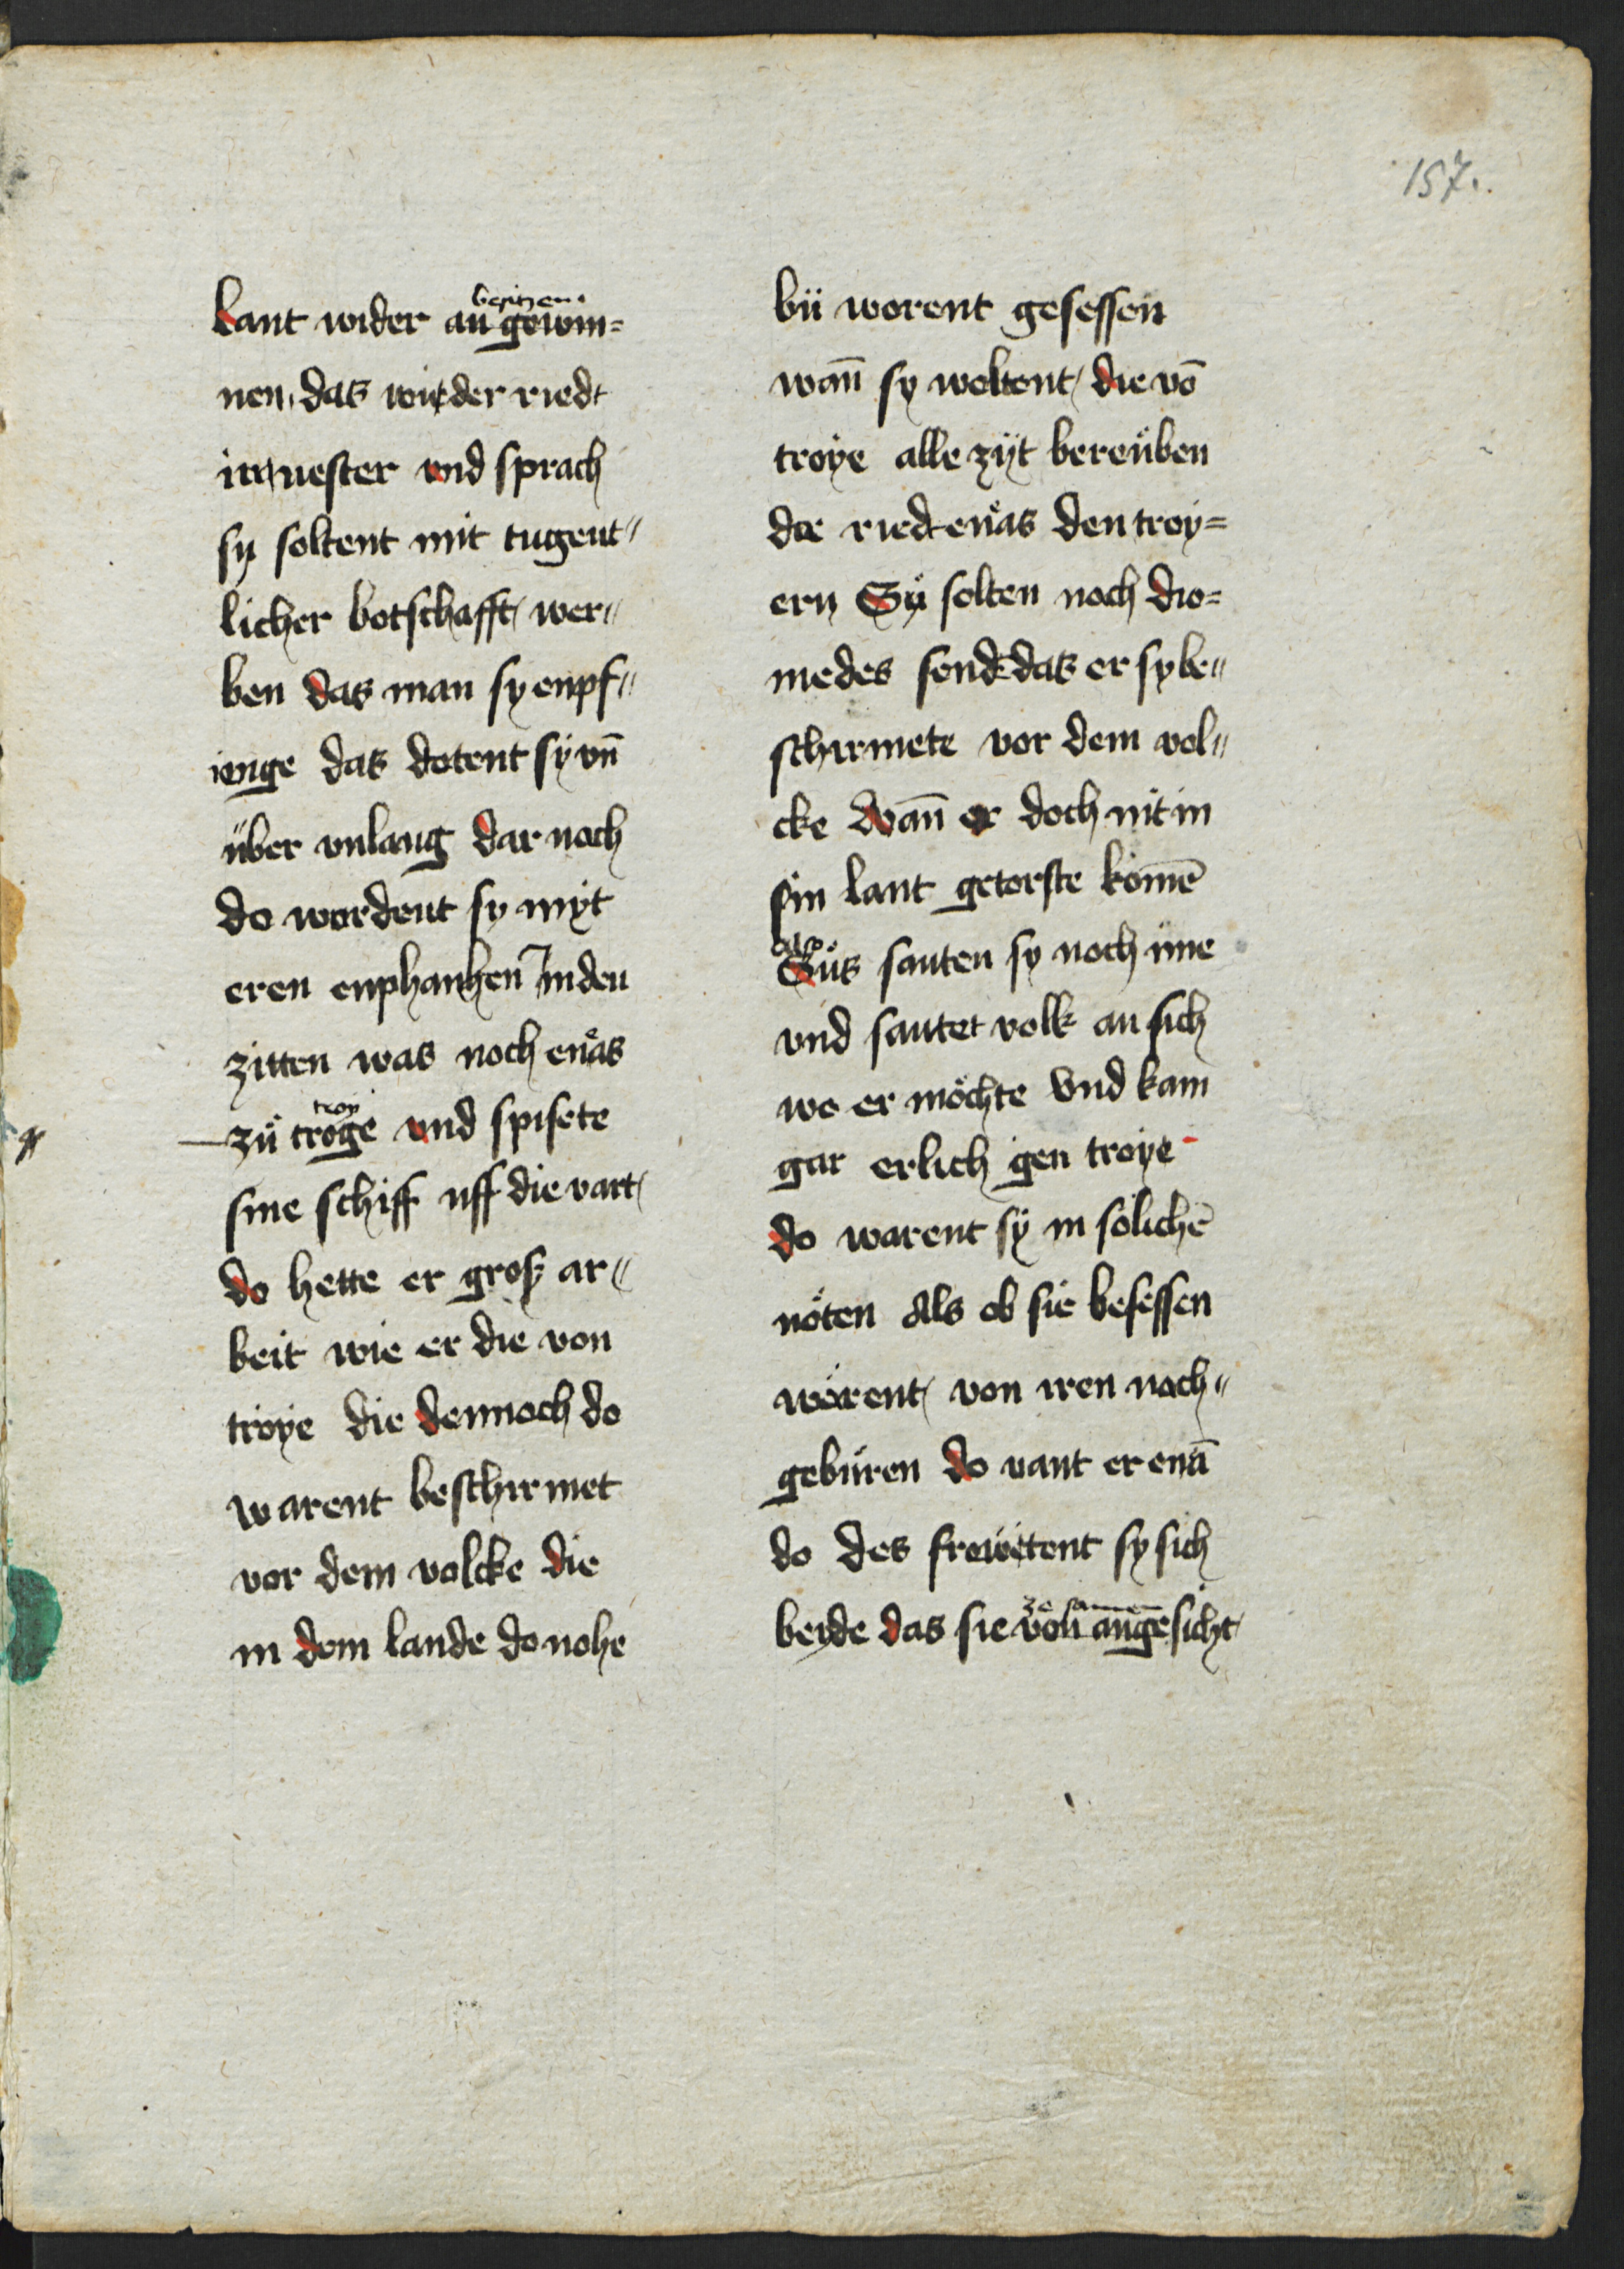 157.
besitzen
Lant wider an gewin=
nen, das wider riedt
ir nester vnd sprach
sy soltent mit tugent"
licher botschafft, wer"
ben das man sy enpf"
ienge das detent sy vn̄
über vnlang dar noch
do wordent sy myt
eren enphanhen In den
zitten was noch eneas
troy
zů troge vnd spisete
sine schiff uff die vart
do hette er grosz ar"
beit wie er die von
troye die dennoch do
warent beschirmet
vor dem volcke die
in dem lande do nohe
bü worent gesessen
wan̄ sy woltent, die vō
troye alle zÿt bereüben
die riedt eneas den troy=
ern Sü solten noch dio=
medes send das er sy be"
schirmete vor dem vol"
cke Wan̄ er doch nit in
sin lant getorste komē
Also
Süs santen sy noch ime
vnd santet volk an sich
wo er möchte Vnd kam
gar erlich gen troye
do warent sÿ in sölichē
nöten Als ob sie besessen
wërent, von iren noch"
gebüren do vant er enā
do des frewetent sy sich
ze samen
beyde das sie von angesicht